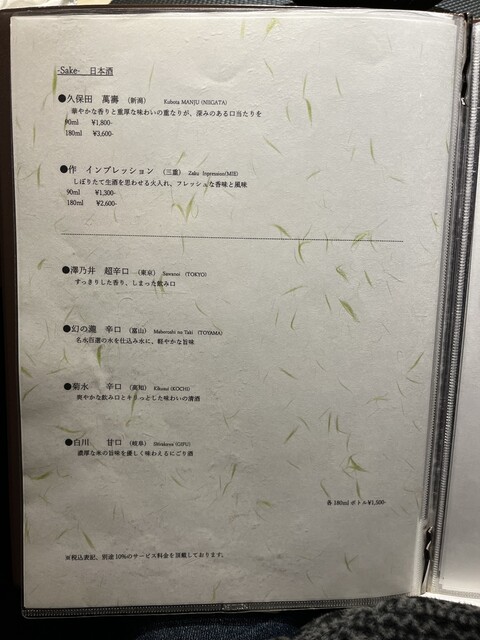 -Sake- 日本酒
●久保田 萬壽 （新潟） Kubota MANJU (NIIGATA)
華やかな香りと重厚な味わいの重なりが、深みのある口当たりを
90ml ¥1,800-
180ml ¥3,600-
●作 インプレッション （三重） Zaku Inpression(MIE)
しぼりたて生酒を思わせる火入れ、フレッシュな香味と風味
90ml ¥1,300-
180ml ¥2,600-
●澤乃井 超辛口 （東京） Sawanoi （TOKYO）
すっきりした香り、しまった飲み口
●幻の瀧 辛口 （富山） Maboroshi no Taki （TOYAMA）
名水百選の水を仕込み水に、軽やかな旨味
●菊水 辛口 （高知） Kikusui (KOCHI)
爽やかな飲み口とキリっとした味わいの清酒
●白川 甘口 （岐阜） Shirakawa (GIFU)
濃厚な米の旨味を優しく味わえるにごり酒
各180mlボトル¥1,500-
※税込表記、別途10%のサービス料金を頂戴しております。